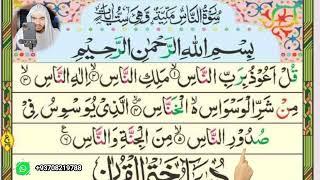 سُوْرَةُ النَّاسِ مَكِّيَّةٌ وَّهِيَ سِتُّ اٰيَاتٍ
بِسْمِ اللّٰهِ الرَّحْمٰنِ الرَّحِيْمِ
قُلْ اَعُوْذُ بِرَبِّ النَّاسِ ۙ۱ مَلِكِ النَّاسِ ۙ۲ اِلٰهِ النَّاسِ ۙ۳
مِنْ شَرِّ الْوَسْوَاسِ ۙ۬ الْخَنَّاسِ ۪ۙ۴ الَّذِيْ يُوَسْوِسُ فِيْ
صُدُوْرِ النَّاسِ ۙ۵ مِنَ الْجِنَّةِ وَالنَّاسِ ۶